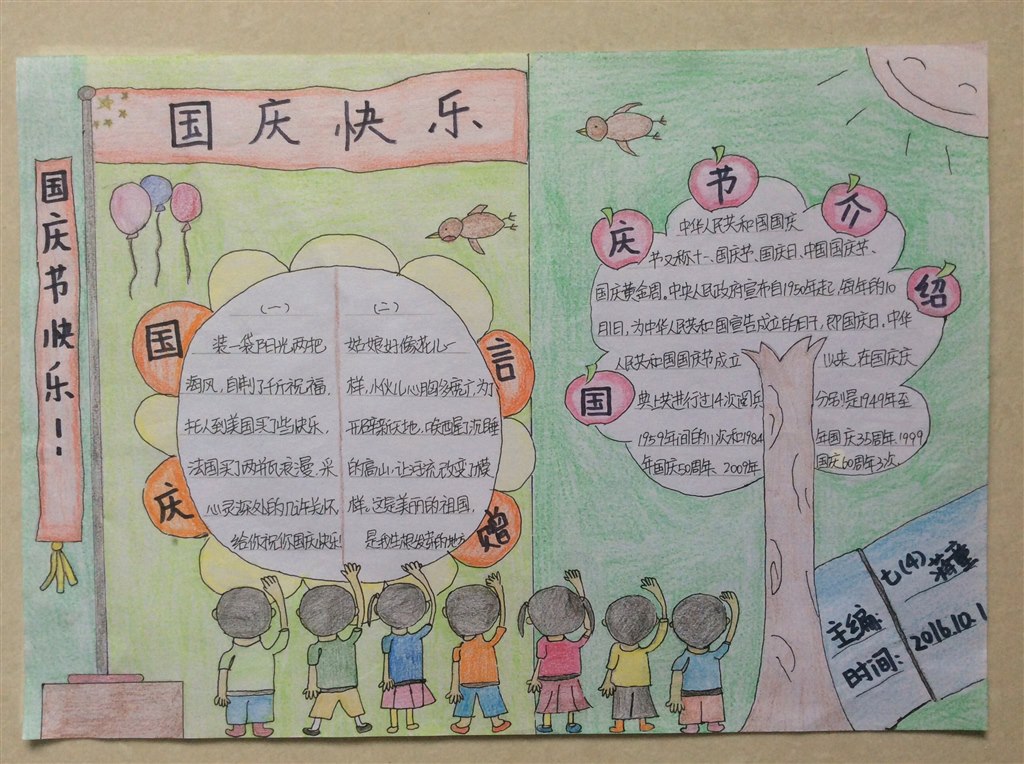 国庆快乐
国庆节快乐！
国庆赠言
（一）
装一袋阳光两把
海风，自制了千斤祝福，
托人到美国买了些快乐，
法国买了两瓶浪漫，采
心灵深处的几许长怀，
给你祝你国庆快乐！
（二）
姑娘好像花儿一
样，小伙儿心胸多宽广，为了
开辟新天地，唤醒了沉睡
的高山，让河流改变了模
样。这是美丽的祖国，
是我生根发芽的地方
国庆节介绍
中华人民共和国国庆
节又称十一、国庆节、国庆日、中国国庆节、
国庆黄金周。中央人民政府宣布自1950年起，每年的10
月1日，为中华人民共和国宣告成立的日子，即国庆日，中华
人民共和国国庆节成立 以来，在国庆庆
典上共进行过14次阅兵 分别是1949年至
1959年间的11次和1984 年国庆35周年、1999
年国庆50周年、2009年 国庆60周年3次。
主编：七（4）蒋童
时间：2016.10.1